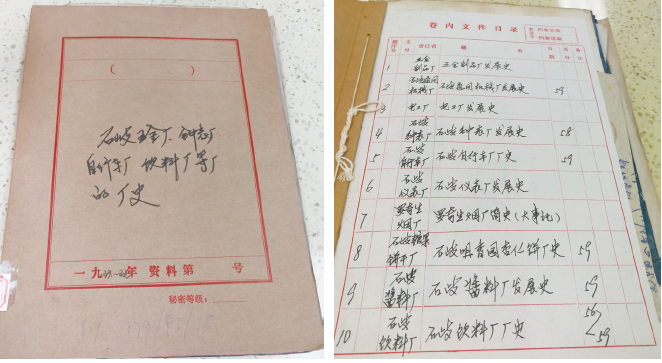 ( )
石岐五金厂、钟表厂
自行车厂 饮料厂等厂
的厂史
一九 年 资料第 号
秘密等级:
卷内文件目录
顺序号 文号 责任者 题名 日期 页号 备注
1 五金制品厂 五金制品厂发展史
2 石岐农用机械厂 石岐农用机械厂发展史 59
3 电工厂 电工厂发展史
4 石岐钟表厂 石岐钟表厂发展史 58
5 石岐自行车厂 石岐自行车厂厂史 59
6 石岐仪表厂 石岐仪表厂发展史
7 罗奇生烟厂 罗奇生烟厂简史(大事记)
8 石岐糖果饼干厂 石岐咀香园杏仁饼厂史 59
9 石岐酱料厂 石岐酱料厂发展史 59
10 石岐饮料厂 石岐饮料厂厂史 56 59